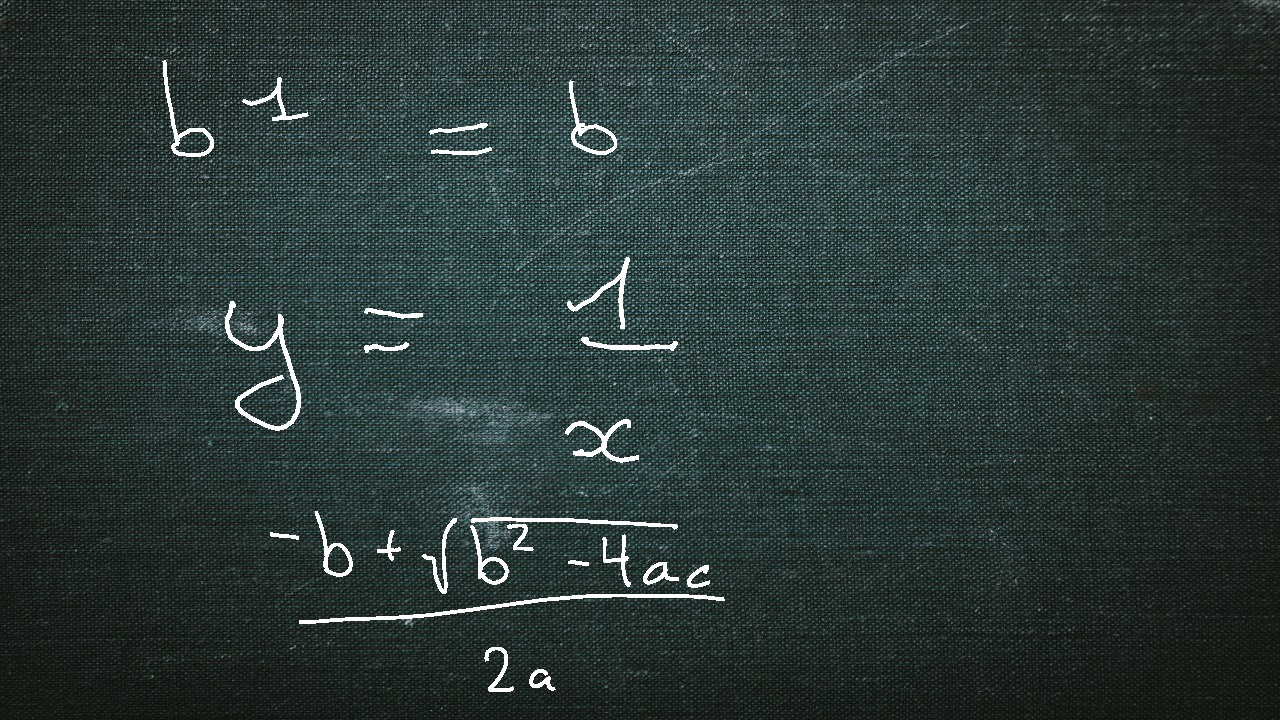 b^1 = b
y = \frac{1}{x}
\frac{-b + \sqrt{b^2 - 4ac}}{2a}